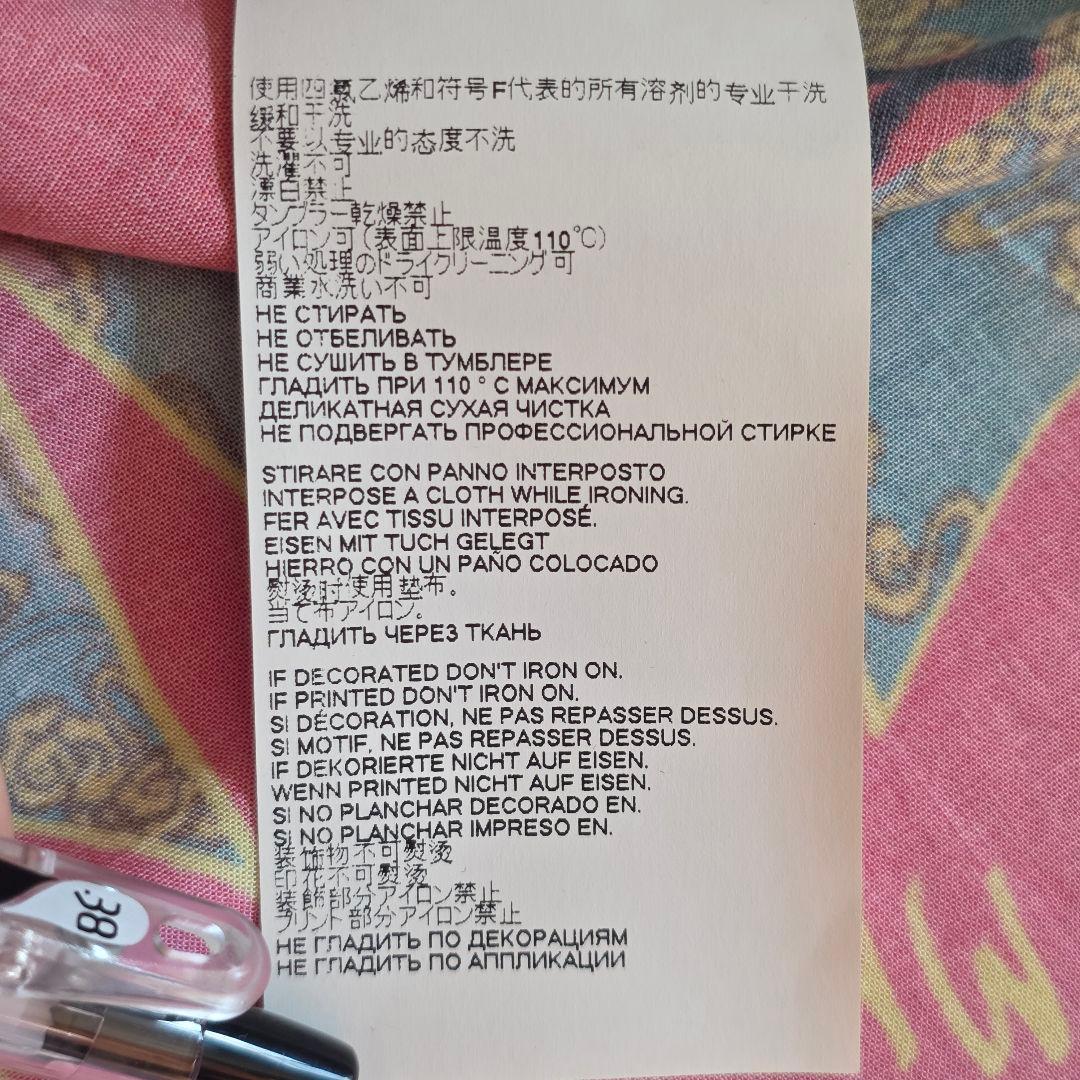 使用四氯乙烯和符号F代表的所有溶剂的专业干洗
缓和干洗
不要以专业的态度不洗
洗濯不可
漂白禁止
タンブラー乾燥禁止
アイロン可(表面上限温度110℃)
弱い処理のドライクリーニング可
商業水洗い不可
НЕ СТИРАТЬ
НЕ ОТБЕЛИВАТЬ
НЕ СУШИТЬ В ТУМБЛЕРЕ
ГЛАДИТЬ ПРИ 110 ° С МАКСИМУМ
ДЕЛИКАТНАЯ СУХАЯ ЧИСТКА
НЕ ПОДВЕРГАТЬ ПРОФЕССИОНАЛЬНОЙ СТИРКЕ
STIRARE CON PANNO INTERPOSTO
INTERPOSE A CLOTH WHILE IRONING.
FER AVEC TISSU INTERPOSÉ.
EISEN MIT TUCH GELEGT
HIERRO CON UN PAÑO COLOCADO
熨烫时使用垫布。
当て布アイロン。
ГЛАДИТЬ ЧЕРЕЗ ТКАНЬ
IF DECORATED DON'T IRON ON.
IF PRINTED DON'T IRON ON.
SI DÉCORATION, NE PAS REPASSER DESSUS.
SI MOTIF, NE PAS REPASSER DESSUS.
IF DEKORIERTE NICHT AUF EISEN.
WENN PRINTED NICHT AUF EISEN.
SI NO PLANCHAR DECORADO EN.
SI NO PLANCHAR IMPRESO EN.
装饰物不可熨烫
印花不可熨烫
装飾部分アイロン禁止
プリント部分アイロン禁止
НЕ ГЛАДИТЬ ПО ДЕКОРАЦИЯМ
НЕ ГЛАДИТЬ ПО АППЛИКАЦИИ
38